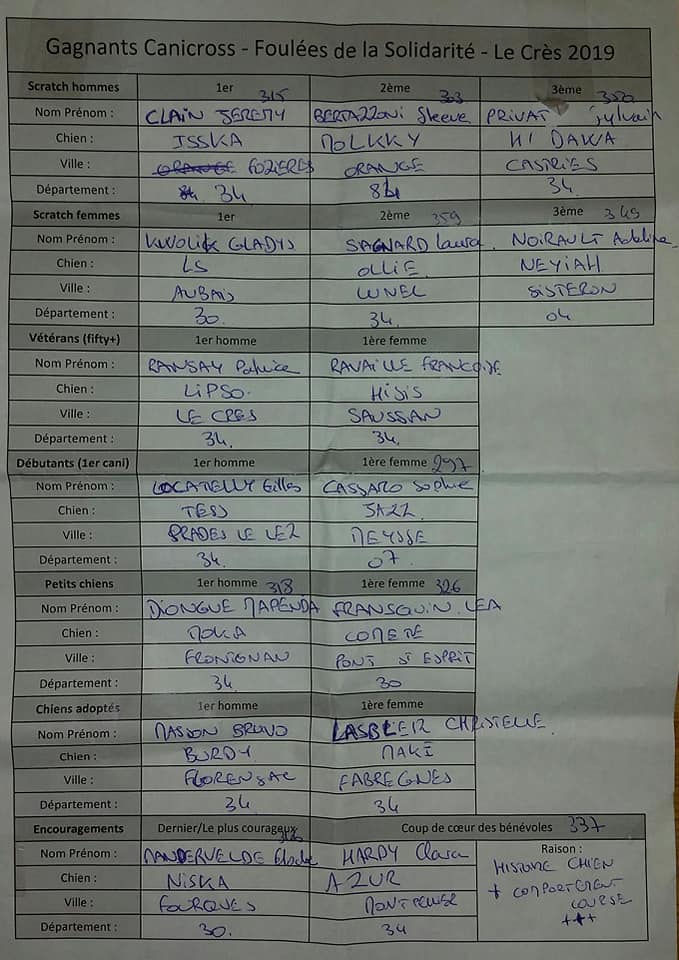 Gagnants Canicross - Foulées de la Solidarité - Le Crès 2019
Scratch hommes 1er 315 2ème 303 3ème 350
Nom Prénom : CLAIN JEREMY BERTAZZONI Steeve PRIVAT Sylvain
Chien : ISSKA MOLKKY HI DAWA
Ville : ORANGE FOZIERES ORANGE CASTRIES
Département : 84 34 84 34
Scratch femmes 1er 2ème 359 3ème 349
Nom Prénom : KWOLIK GLADYS SAGNARD Laura NOIRAULT Adeline
Chien : LS OLLIE NEYIAH
Ville : AUBAIS LUNEL SISTERON
Département : 30. 34. 04
Vétérans (fifty+) 1er homme 1ère femme
Nom Prénom : RAMSAY Patrice RAVAILLE FRANCOISE
Chien : LIPSO. HISIS
Ville : LE CRES SAUSSAN
Département : 34. 34.
Débutants (1er cani) 1er homme 1ère femme 297
Nom Prénom : LOCATELLY Gilles CASSARO Sophie
Chien : TESS JAZZ.
Ville : PRADES LE LEZ MEYSSE
Département : 34. 07.
Petits chiens 1er homme 318 1ère femme 326
Nom Prénom : DIONGUE MAPENDA FRANSQUIN. LEA
Chien : MOKA COMETE
Ville : FRONTIGNAN PONT ST ESPRIT
Département : 34 30
Chiens adoptés 1er homme 1ère femme
Nom Prénom : MASSON BRUNO LASBLEIZ CHRISTELLE.
Chien : BURDY. MAKÏ
Ville : FLORENSAC FABREGNES
Département : 34 34
Encouragements Dernier/Le plus courageux Coup de cœur des bénévoles 337
Nom Prénom : MANDERVELDE Elodie HARDY Clara Raison :
Chien : NISKA AZUR HISTOIRE CHIEN
Ville : FOURQUES MONTPELLIER + COMPORTEMENT
COURSE
Département : 30. 34 +++